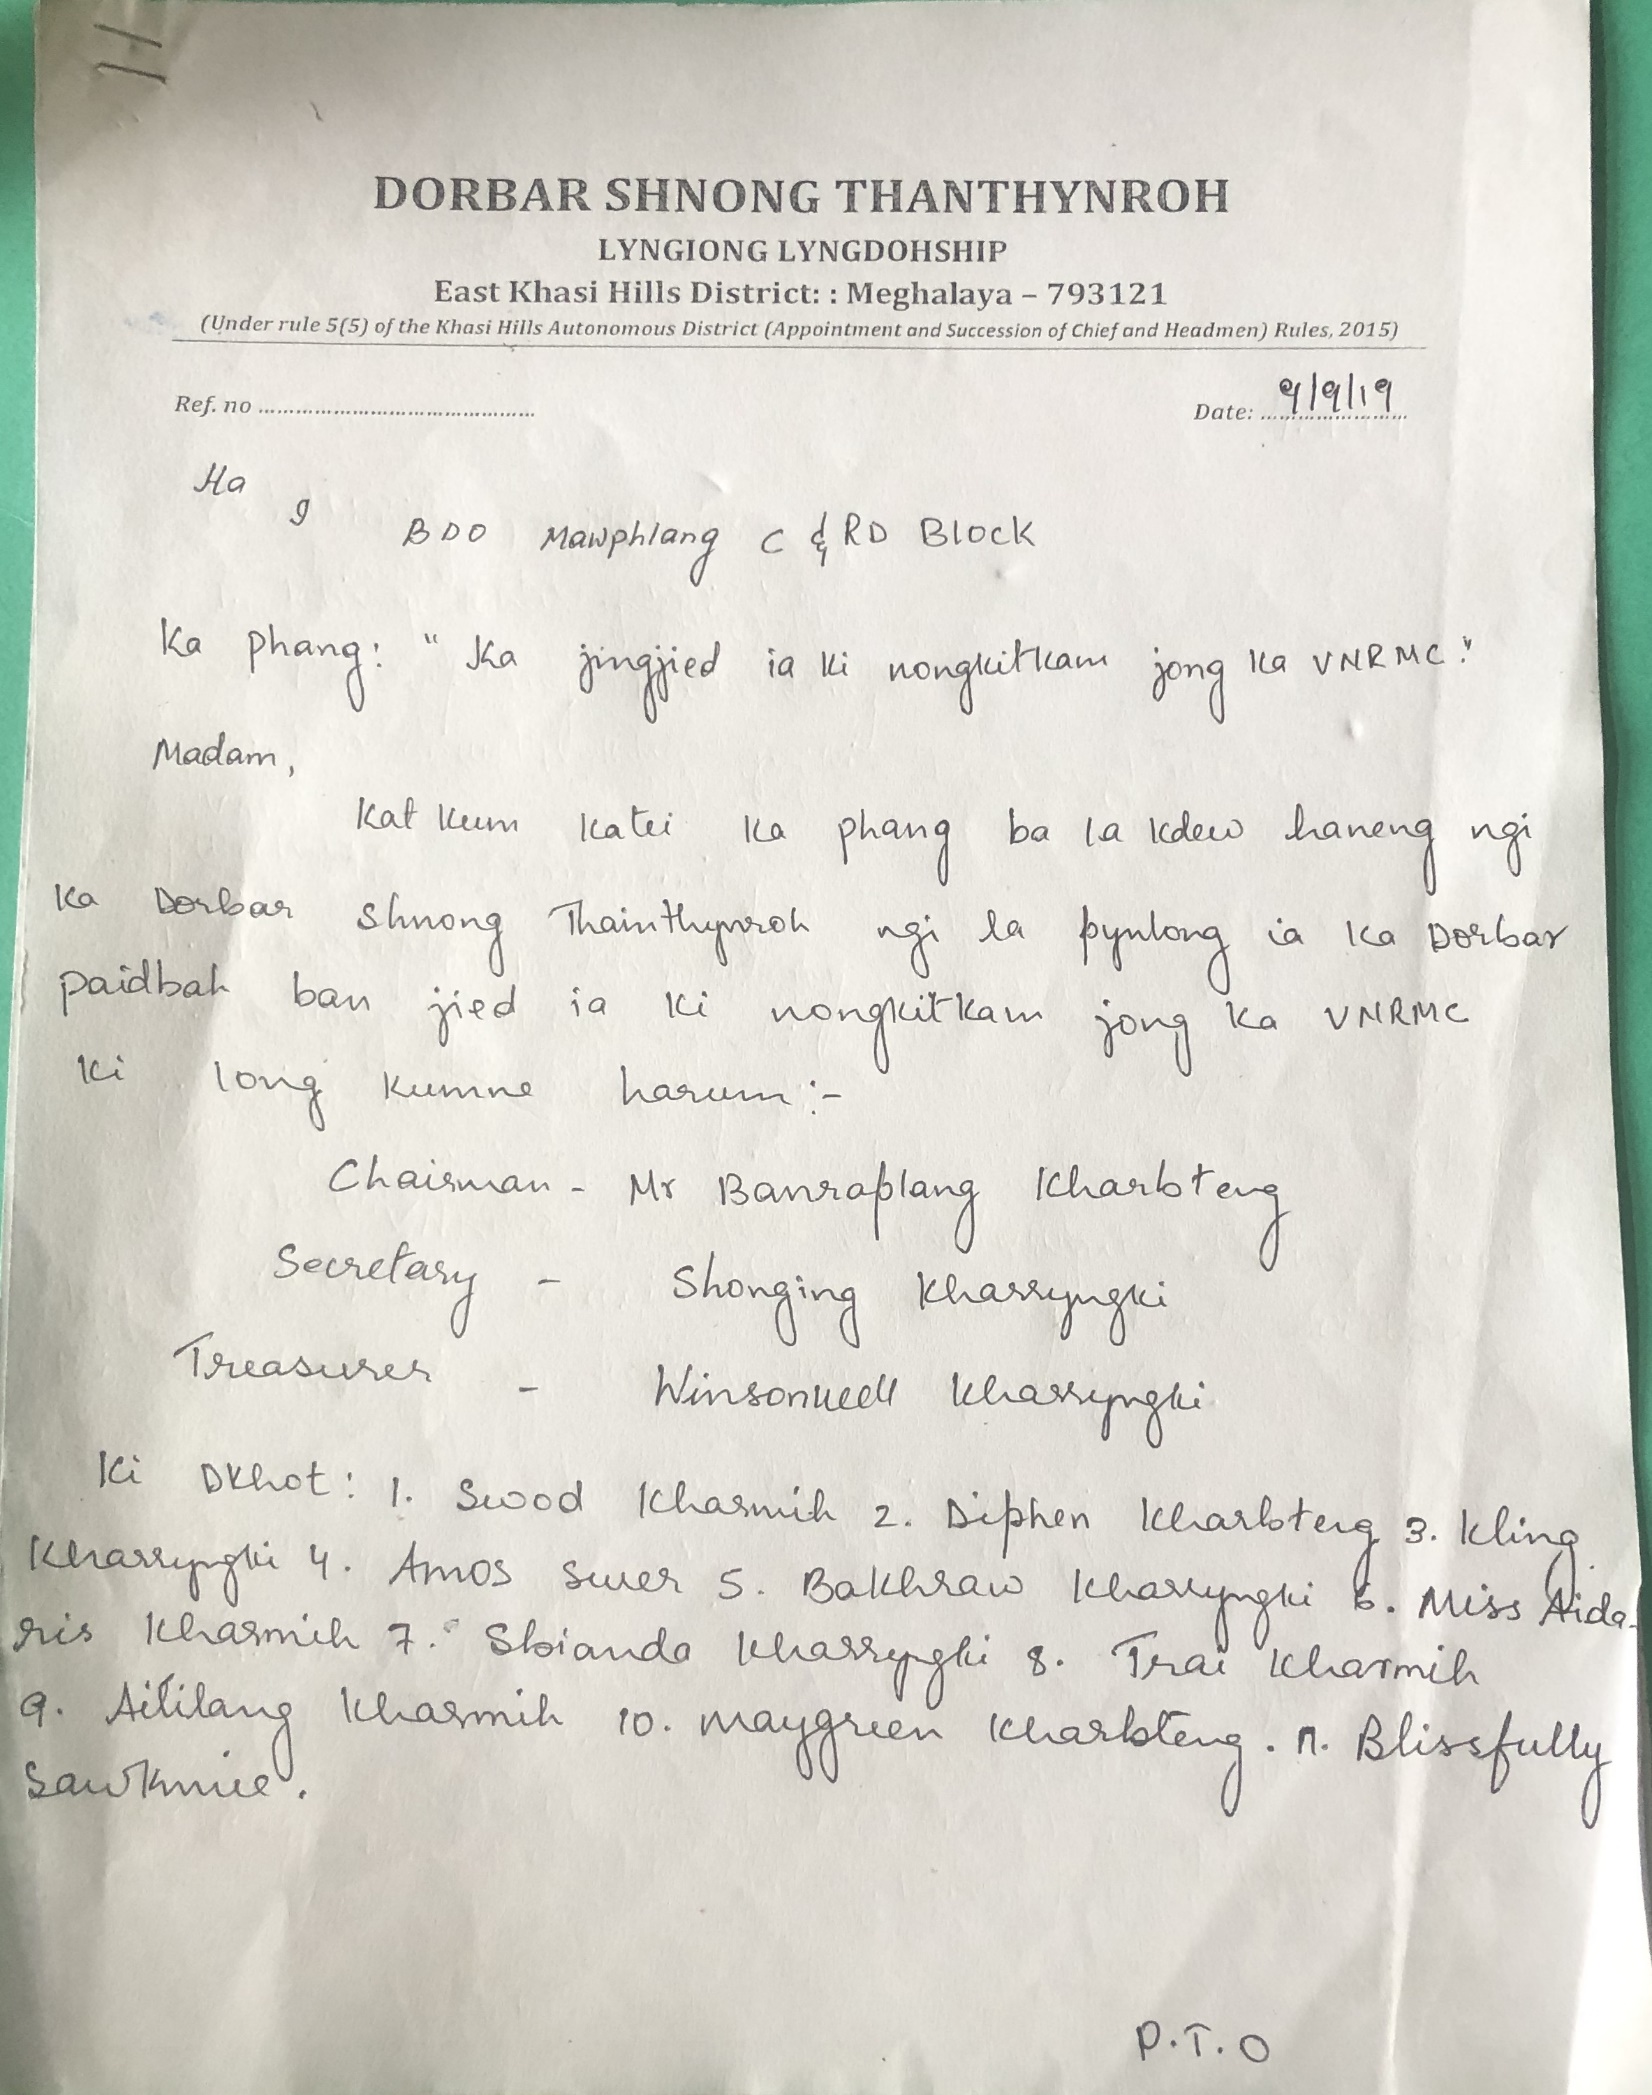 DORBAR SHNONG THANTHYNROH
LYNGIONG LYNGDOHSHIP
East Khasi Hills District: : Meghalaya – 793121
(Under rule 5(5) of the Khasi Hills Autonomous District (Appointment and Succession of Chief and Headmen) Rules, 2015)
Ref. no ................................................ Date: 9/9/19
Ha
I
BDO Mawphlang C & RD Block
Ka phang: "Ka jingjied ia ki nongkitkam jong ka VNRMC."
Madam,
Kat kum katei ka phang ba la kdew haneng ngi
ka Dorbar shnong Thainthynroh ngi la pynlong ia ka Dorbar
paidbah ban jied ia ki nongkitkam jong ka VNRMC
ki long kumne harum:-
Chairman - Mr Banraplang Kharbteng
Secretary - Shonging Kharryngki
Treasurer - Winsonwell Kharryngki
Ki Dkhot: 1. Swod Kharmih 2. Diphen Kharbteng 3. Kling
Kharryngki 4. Amos Swer 5. Bakhraw Kharryngki 6. Miss Aida-
ris Kharmih 7. Sbianda Kharryngki 8. Trai Kharmih
9. Aitilang Kharmih 10. Maygreen Kharbteng. 11. Blissfully
Sawkmie.
P.T.O